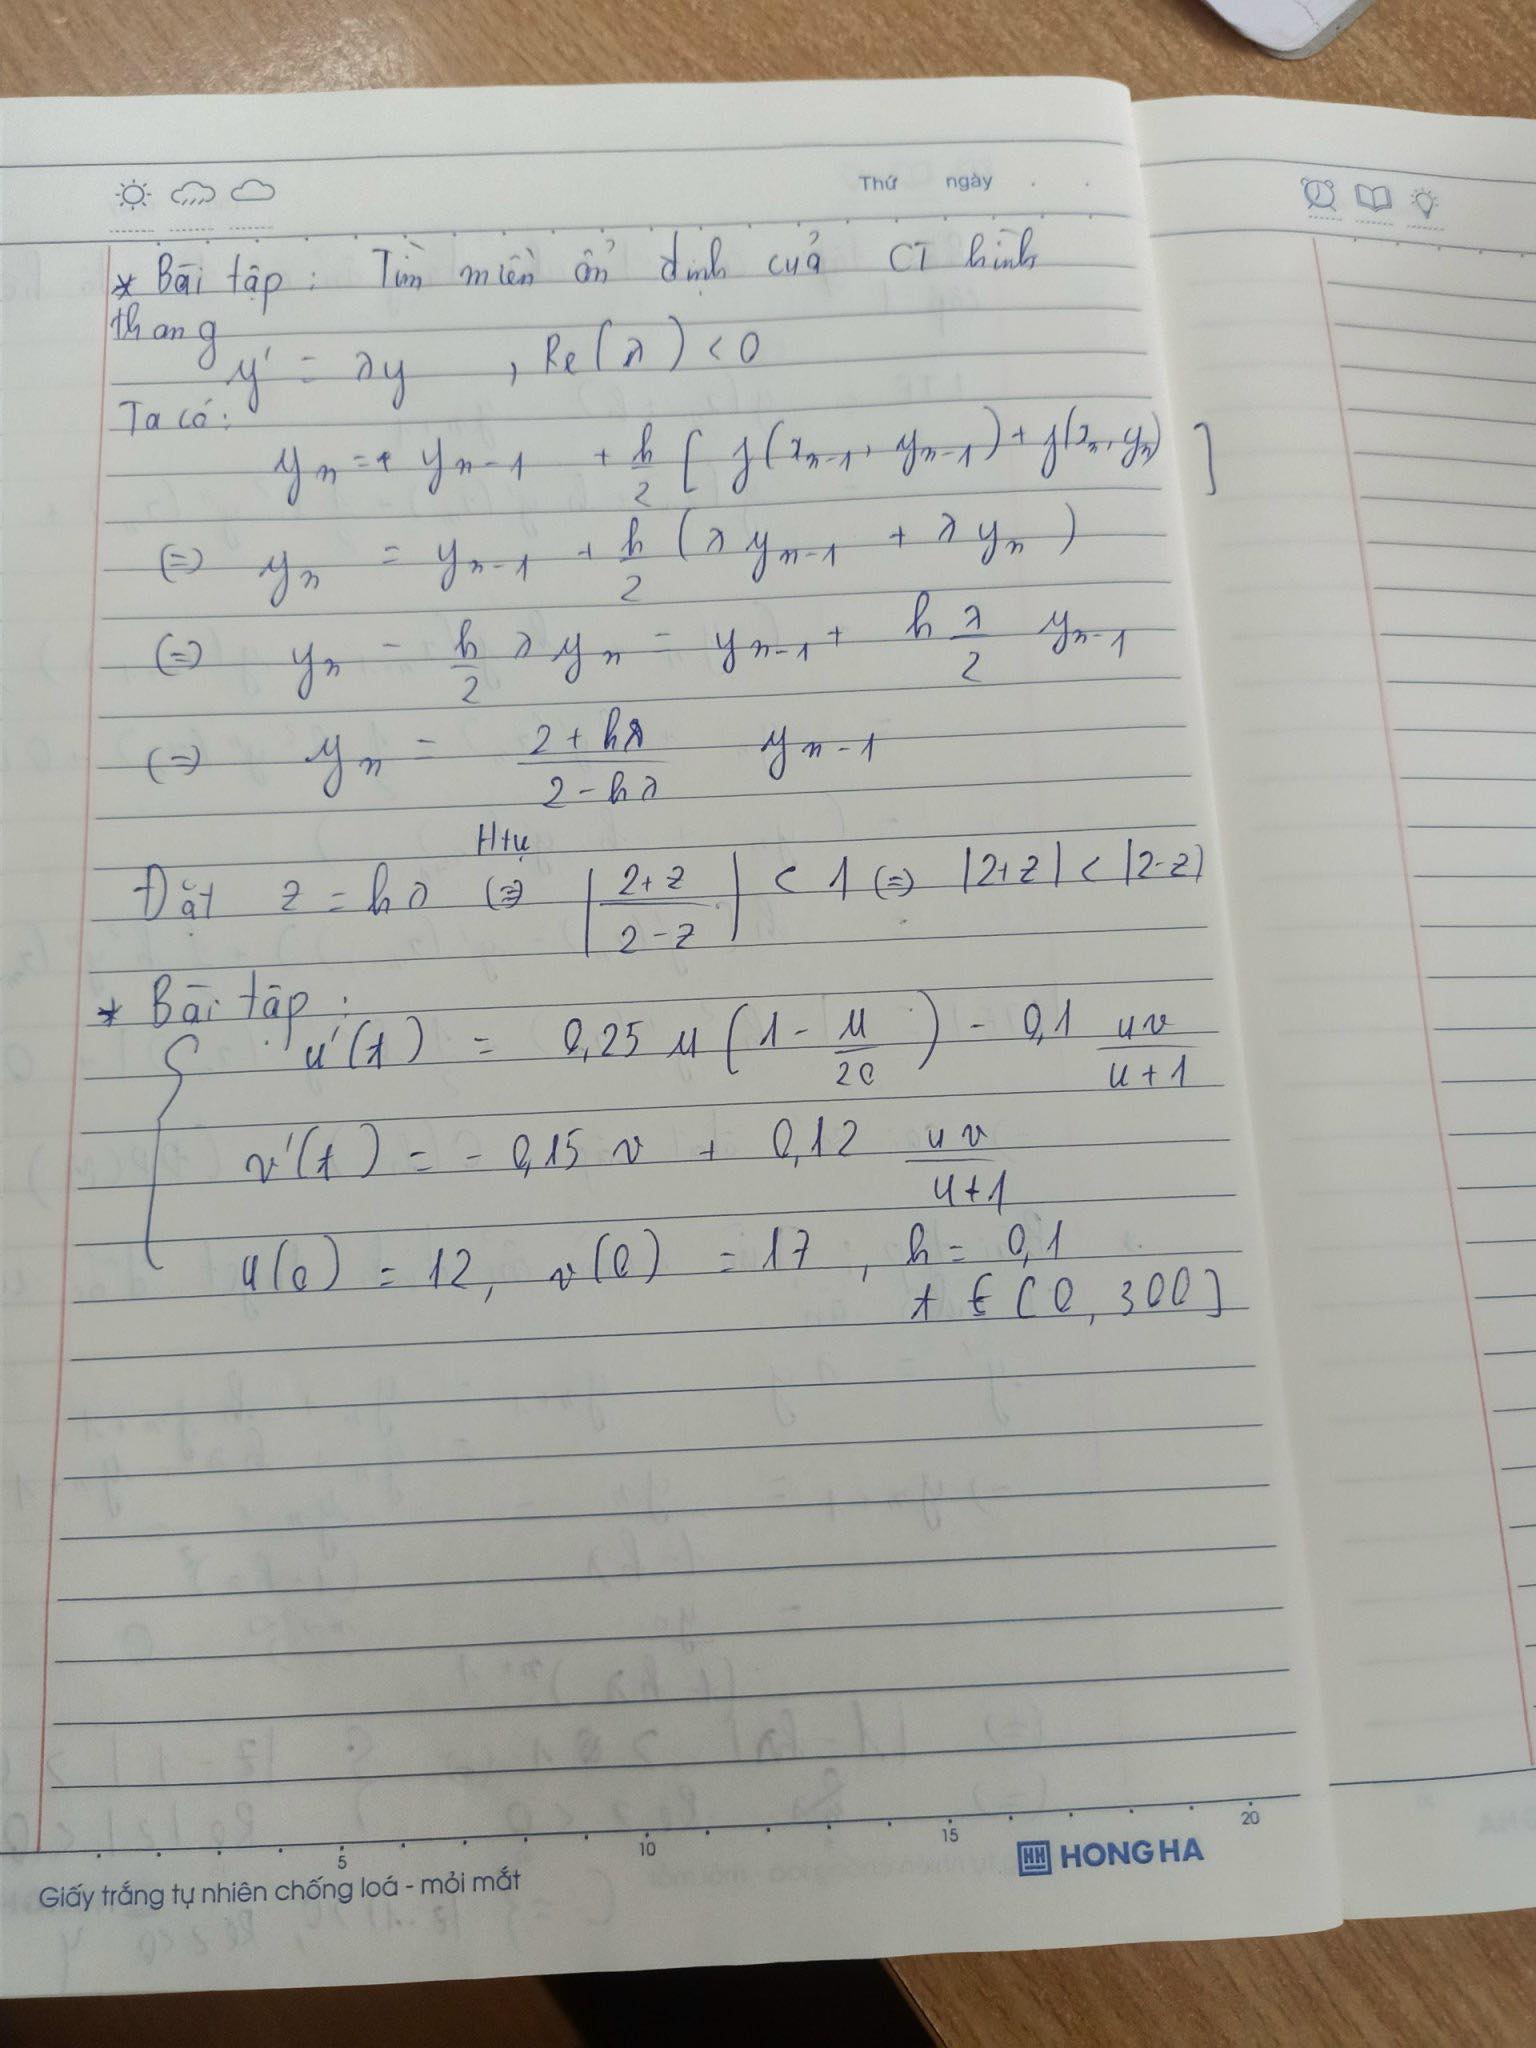 Thứ ngày . .
* Bài tập : Tìm miền ổn định của CT hình
thang
y' = λy , Re(λ) < 0
Ta có:
yₙ = yₙ₋₁ + h/2 [ f(xₙ₋₁, yₙ₋₁) + f(xₙ, yₙ) ]
(=) yₙ = yₙ₋₁ + h/2 (λ yₙ₋₁ + λ yₙ)
(=) yₙ - h/2 λ yₙ = yₙ₋₁ + h λ/2 yₙ₋₁
(=) yₙ = (2 + hλ)/(2 - hλ) yₙ₋₁
Htụ
Đặt z = hλ (=) |(2+z)/(2-z)| < 1 (=) |2+z| < |2-z|
* Bài tập :
{ u'(t) = 0,25 u (1 - u/20) - 0,1 uv/(u+1)
v'(t) = - 0,15 v + 0,12 uv/(u+1)
u(0) = 12, v(0) = 17 , h = 0,1
t ∈ [0, 300]
5 10 15 20
HH HONG HA
Giấy trắng tự nhiên chống loá - mỏi mắt